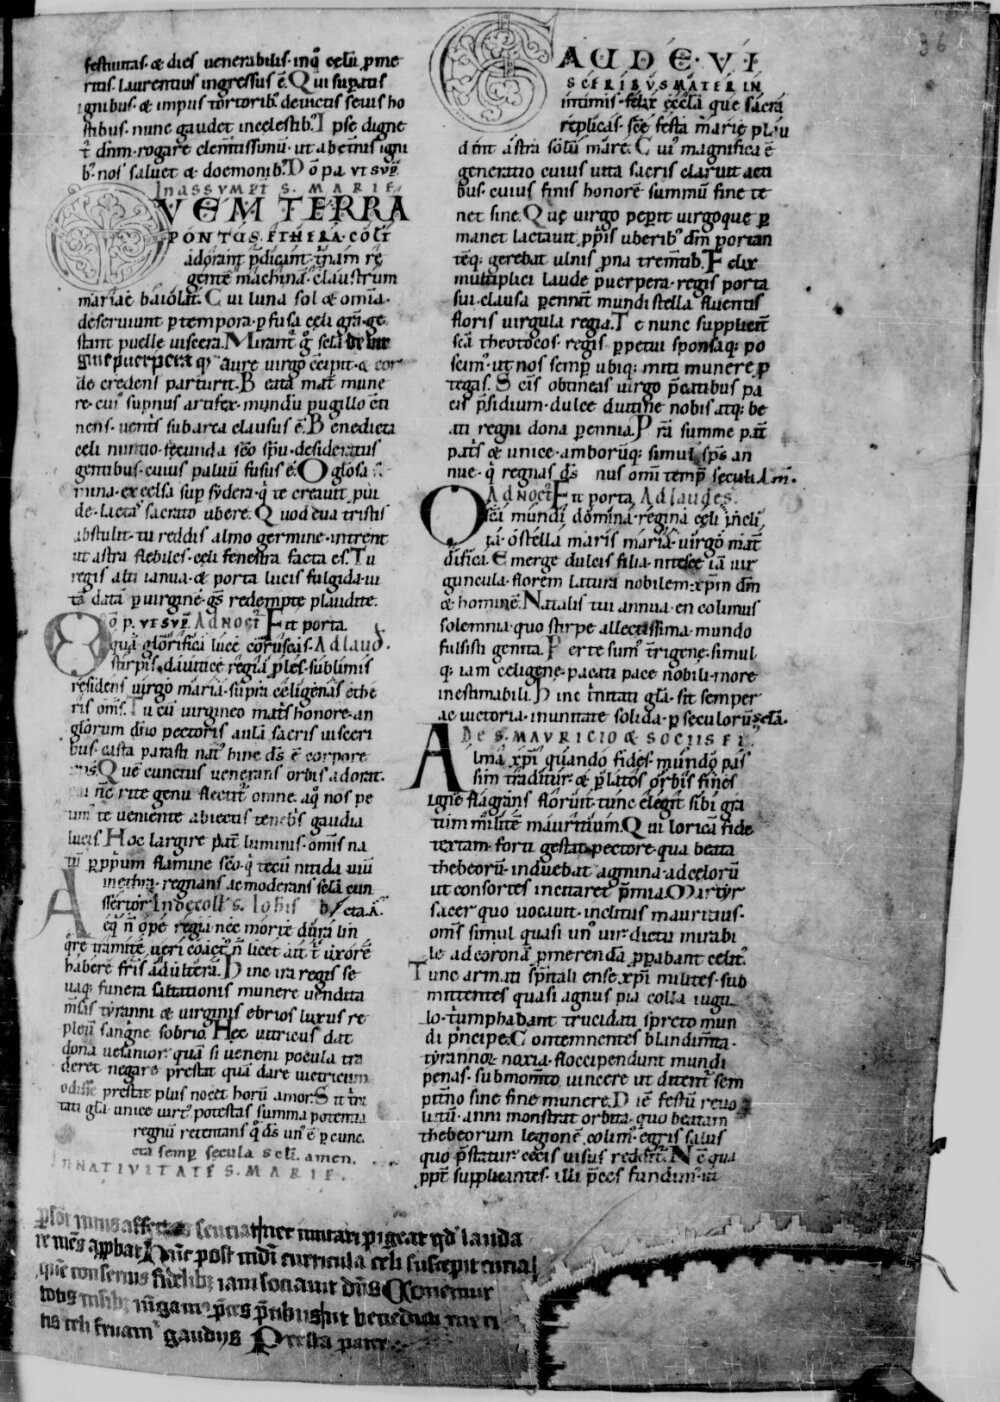 festiuitas. & dies uenerabilis. inq̇ celũ p me
ritis. laurentius ingressus ẽ. Qui supatis
ignibus. & impiis tortorib. deuictis seuis ho
stibus. nunc gaudet in celestib. Ipse digne
t̃ dñm. rogare clemtissimũ. ut abeterius igni
b. nos saluet & doemonib. Dõ pa ut sup̃.
In assumpt̃ s. marie
QVEM TERRA
PONTUS. ETHERA. COLT
adorant p̃dicant. trinam re
gente machinã. claustrum
mariae baiolat̃. Cui luna sol & omia.
deseruiunt p tempora. pfusa celi grã. ge
stant puelle uiscera. Mirant̃ g seła de uir
gine puerpera q aure uirgo cc̃epit. & cor
de credens parturit. Beata mat̃ mune
re. cui supnus artifex. mundũ pugillo cñti
nens. uent̃s sub arca clausus ẽ. Benedicta
celi nuntio. fecunda sc̃o sp̃u. desideratus
gentibus. cuius paluũ fusus ẽ. O głosa
mina. excelsa sup sydera. q̇ te creauit. p̃ui
de. lactas sacrato ubere. Quod eua tristis
abstulit. tu reddis almo germine. intrent
ut astra flebiles. celi fenestra facta es. Tu
regis alti ianua. & porta lucis fulgida. ui
tã datã p uirginẽ. gs̃ redempte plaudite.
Dõ p. ut sup̃. Ad noct̃ Fit porta.
O quã glõrifica luce coruscas. Ad laud̃.
stirpis. dauitice regia ples. sublimis
residens uirgo maria. supra celigenas ethe
ris oms̃. Tu cũ uirgineo mat̃s honore. an
glorum dño pectoris aulã sacris uisceri
bus. casta parasti. nat̃ hinc ds̃ ẽ corpore
xps̃. Quẽ cunctus uenerans orbis adorat.
cui nc̃ rite genu flectit̃ omne. a q nos pe
tim te ueniente abiectis tenebs̃ gaudia
lucis. Hoc largire pat̃ luminis. omis̃ na
tũ p p̃prium flamine sc̃o. q̇ tecũ nitida uiu
in ethra. regnans ac moderans secłã cun
In decoll̃ s. Iohis
Aeq̃ ñ ope regia. nec morte dũra lin
q̇re tramite. ueri coact̃ ñ licet ait t̃ uxorẽ
habere fris̃ adulterã. Hinc ira regis se
uaq; funera saltationis munere uendita
mẽsis tyranni & uirginis ebrios luxus re
pleũ sangne sobrio. Hec uitricus dat
dona uesanior. quã si ueneni pocula tra
deret negare prestat quã dare uictricum
odisse prestat plus nocet horũ amor. Sit tri
tati głã. unice uirt̃ potestas summa potentia
regnũ retentans q̇ ds̃ un ẽ p cunc
cta semp̃ secula seclĩ. amen.
IN NATIVITATE S. MARIE.
GAUDE VI
SCERIBUS MATER IN
intimis. felix ecclã que sacra
replicas. sc̃e festa marie plau
dent astra solũ mare. Cui magnifica ẽ
generatio cuius uita sacris claruit acti
bus. cuius finis honorẽ summũ fine te
net sine. Que uirgo peperit uirgoque p
manet lactauit pp̃is uberib dm̃ portan
teq; gerebat ulnis p̃na trem̃tib. Felix
multiplici laude puerpera. regis porta
sui clausa p ennit̃ mundi stella fluentis
floris uirgula regia. Te nunc supplicent
scã theotocos. regis. p petui sponsaq; po
scim. ut nos semp̃ ubiq; miti munere p
tegas. Sc̃is obtineas uirgo p̃catibus pa
cis p̃sidium. dulce diutine nobis atq; be
ati regni dona p ennia. Prã summe pat̃
pat̃s & unice. amborũq; simul sp̃s an
nue. q̇ regnas ds̃ nus omi temp̃ seculi. am̃.
Ad noct̃ Fit porta. Ad laudes.
O scã mundi domina. regina celi incli
ta. o stella maris maria. uirgo mat̃
difica. Emerge dulcis filia. nitesce iã uir
guncula. florem latura nobilem. xp̃m dm̃
& hominẽ. Natalis tui annua. en colimus
solemnia. quo stirpe allectissima. mundo
fulsisti genita. Per te sum̃ trigene. simul
q; iam celigene. pacati pace nobili. more
inestimabili. Hinc t̃nitati głã. sit semper
ac uictoria. in unitate solida. p seculorũ seclã.
DE S. MAVRICIO & SOCIIS EI.
Alma xpĩ quando fides. mundo pas
sim traditur. & p latos orbis fines
igne flagrans floruit. tunc elegit sibi gra
tum militẽ mauritium. Qui lorica fide
textam. forti gestat pectore. qua beata
thebeorũ. induebat agmina. ad celorũ
ut consortes incitaret p̃mia. Martyr
sacer quo uocauit. inclitus mauritius.
oms̃ simul quasi un uir. dictu mirabi
le. ad coronã p merendã p̃parabant celit.
Tunc armati sp̃itali ense. xpĩ milites. sub
mittentes quasi agnus pia colla iugu
lo. triumphabant trucidati spreto mun
di p̃ncipe. Contemnentes blandim̃ta.
tyranno noxia. floccipendunt mundi
penas. submom̃to. uincere ut ditent̃ sem
pit̃no sine fine munere. Diẽ festũ reuo
lutũ. anni monstrat orbita. quo beatam
thebeorum legionẽ colim. egris salus
quo p̃statur. cecis uisus reddit̃. Nẽ qua
ppt̃ supplicantes. illi p̃ces fundim. ut
mutari pigeat qd̃ lauda
Hũc post mũdi curricula celi suscepit curia
quẽ conseruis fidelib; iam sociauit dñs
ut benedicti
tis celi fruam̃ gaudiis Presta pater